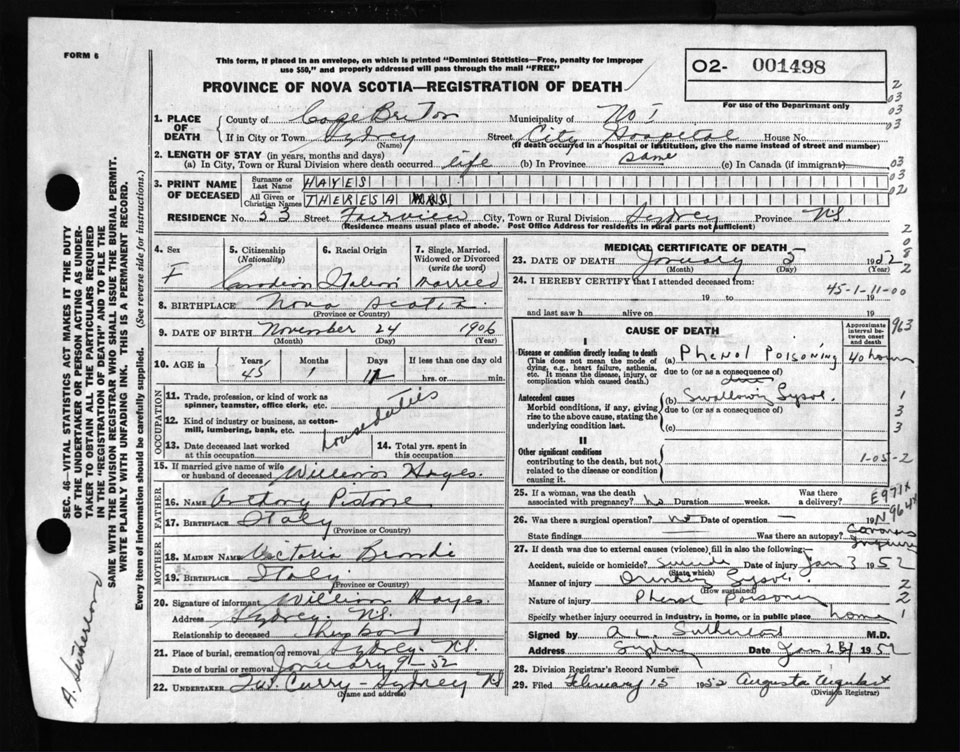 FORM 6
This form, if placed in an envelope, on which is printed "Dominion Statistics—Free, penalty for improper
use $50," and properly addressed will pass through the mail "FREE"
PROVINCE OF NOVA SCOTIA—REGISTRATION OF DEATH
O2- 001498
For use of the Department only
1. PLACE OF DEATH
County of Cape Breton Municipality of No 1
If in City or Town Sydney Street City Hospital House No.
(Name) (If death occurred in a hospital or institution, give the name instead of street and number)
2. LENGTH OF STAY (in years, months and days)
(a) In City, Town or Rural Division where death occurred life (b) In Province same (c) In Canada (if immigrant)
3. PRINT NAME OF DECEASED
Surname or Last Name HAYES
All Given or Christian Names THERESA MRS
RESIDENCE No. 53 Street Fairview City, Town or Rural Division Sydney Province NS.
(Residence means usual place of abode. Post Office Address for residents in rural parts not sufficient)
2
03
03
03
03
03
02
2
0
8
2
SEC. 46—VITAL STATISTICS ACT MAKES IT THE DUTY
OF THE UNDERTAKER OR PERSON ACTING AS UNDER-
TAKER TO OBTAIN ALL THE PARTICULARS REQUIRED
IN THE "REGISTRATION OF DEATH" AND TO FILE THE
SAME WITH THE DIVISION REGISTRAR WHO SHALL ISSUE THE BURIAL PERMIT.
WRITE PLAINLY WITH UNFADING INK. THIS IS A PERMANENT RECORD.
Every item of information should be carefully supplied. (See reverse side for instructions.)
A. Sutherland
4. Sex F
5. Citizenship (Nationality) Canadian
6. Racial Origin Italian
7. Single, Married, Widowed or Divorced (write the word) Married
8. BIRTHPLACE Nova Scotia
(Province or Country)
9. DATE OF BIRTH November 24 1906
(Month) (Day) (Year)
10. AGE in Years 45 Months 1 Days 12 If less than one day old hrs. or min.
OCCUPATION
11. Trade, profession, or kind of work as
spinner, teamster, office clerk, etc.
12. Kind of industry or business, as cotton-
mill, lumbering, bank, etc.
house duties
13. Date deceased last worked at this occupation
14. Total yrs. spent in this occupation
15. If married give name of wife
or husband of deceased William Hayes.
FATHER
16. NAME Anthony Pistone
17. BIRTHPLACE Italy
(Province or Country)
MOTHER
18. MAIDEN NAME Victoria
19. BIRTHPLACE Italy
(Province or Country)
20. Signature of informant William Hayes.
Address Sydney NS.
Relationship to deceased husband
21. Place of burial, cremation or removal Sydney. NS.
Date of burial or removal January 9 - 52
22. UNDERTAKER Curry - Sydney NS
(Name and address)
MEDICAL CERTIFICATE OF DEATH
23. DATE OF DEATH January 5 1952
(Month) (Day) (Year)
24. I HEREBY CERTIFY that I attended deceased from:
45-1-11-00
19 to 19
and last saw h alive on 19
CAUSE OF DEATH
Approximate interval between onset and death
963
I
Disease or condition directly leading to death
(This does not mean the mode of
dying, e.g., heart failure, asthenia,
etc. It means the disease, injury, or
complication which caused death.)
(a) Phenol Poisoning 40 hours
due to (or as a consequence of)
Antecedent causes
Morbid conditions, if any, giving
rise to the above cause, stating the
underlying condition last.
(b) Swallowing Lysol.
due to (or as a consequence of)
(c)
1
3
3
II
Other significant conditions
contributing to the death, but not
related to the disease or condition
causing it.
1-05-2
25. If a woman, was the death
associated with pregnancy? no Duration weeks. Was there a delivery?
E971X
N964X
26. Was there a surgical operation? no Date of operation — 19
State findings Was there an autopsy? Coroners
Inquiry
27. If death was due to external causes (violence) fill in also the following:
Accident, suicide or homicide? suicide Date of injury Jan 3 1952
(State which)
Manner of injury Drinking Lysol.
(How sustained)
Nature of injury Phenol Poisoning
Specify whether injury occurred in industry, in home, or in public place home
2
2
1
Signed by A. L. Sutherland M.D.
Address Sydney Date Jan 1952
28. Division Registrar's Record Number
29. Filed February 15 1952 Augusta Urquhart
(Division Registrar)